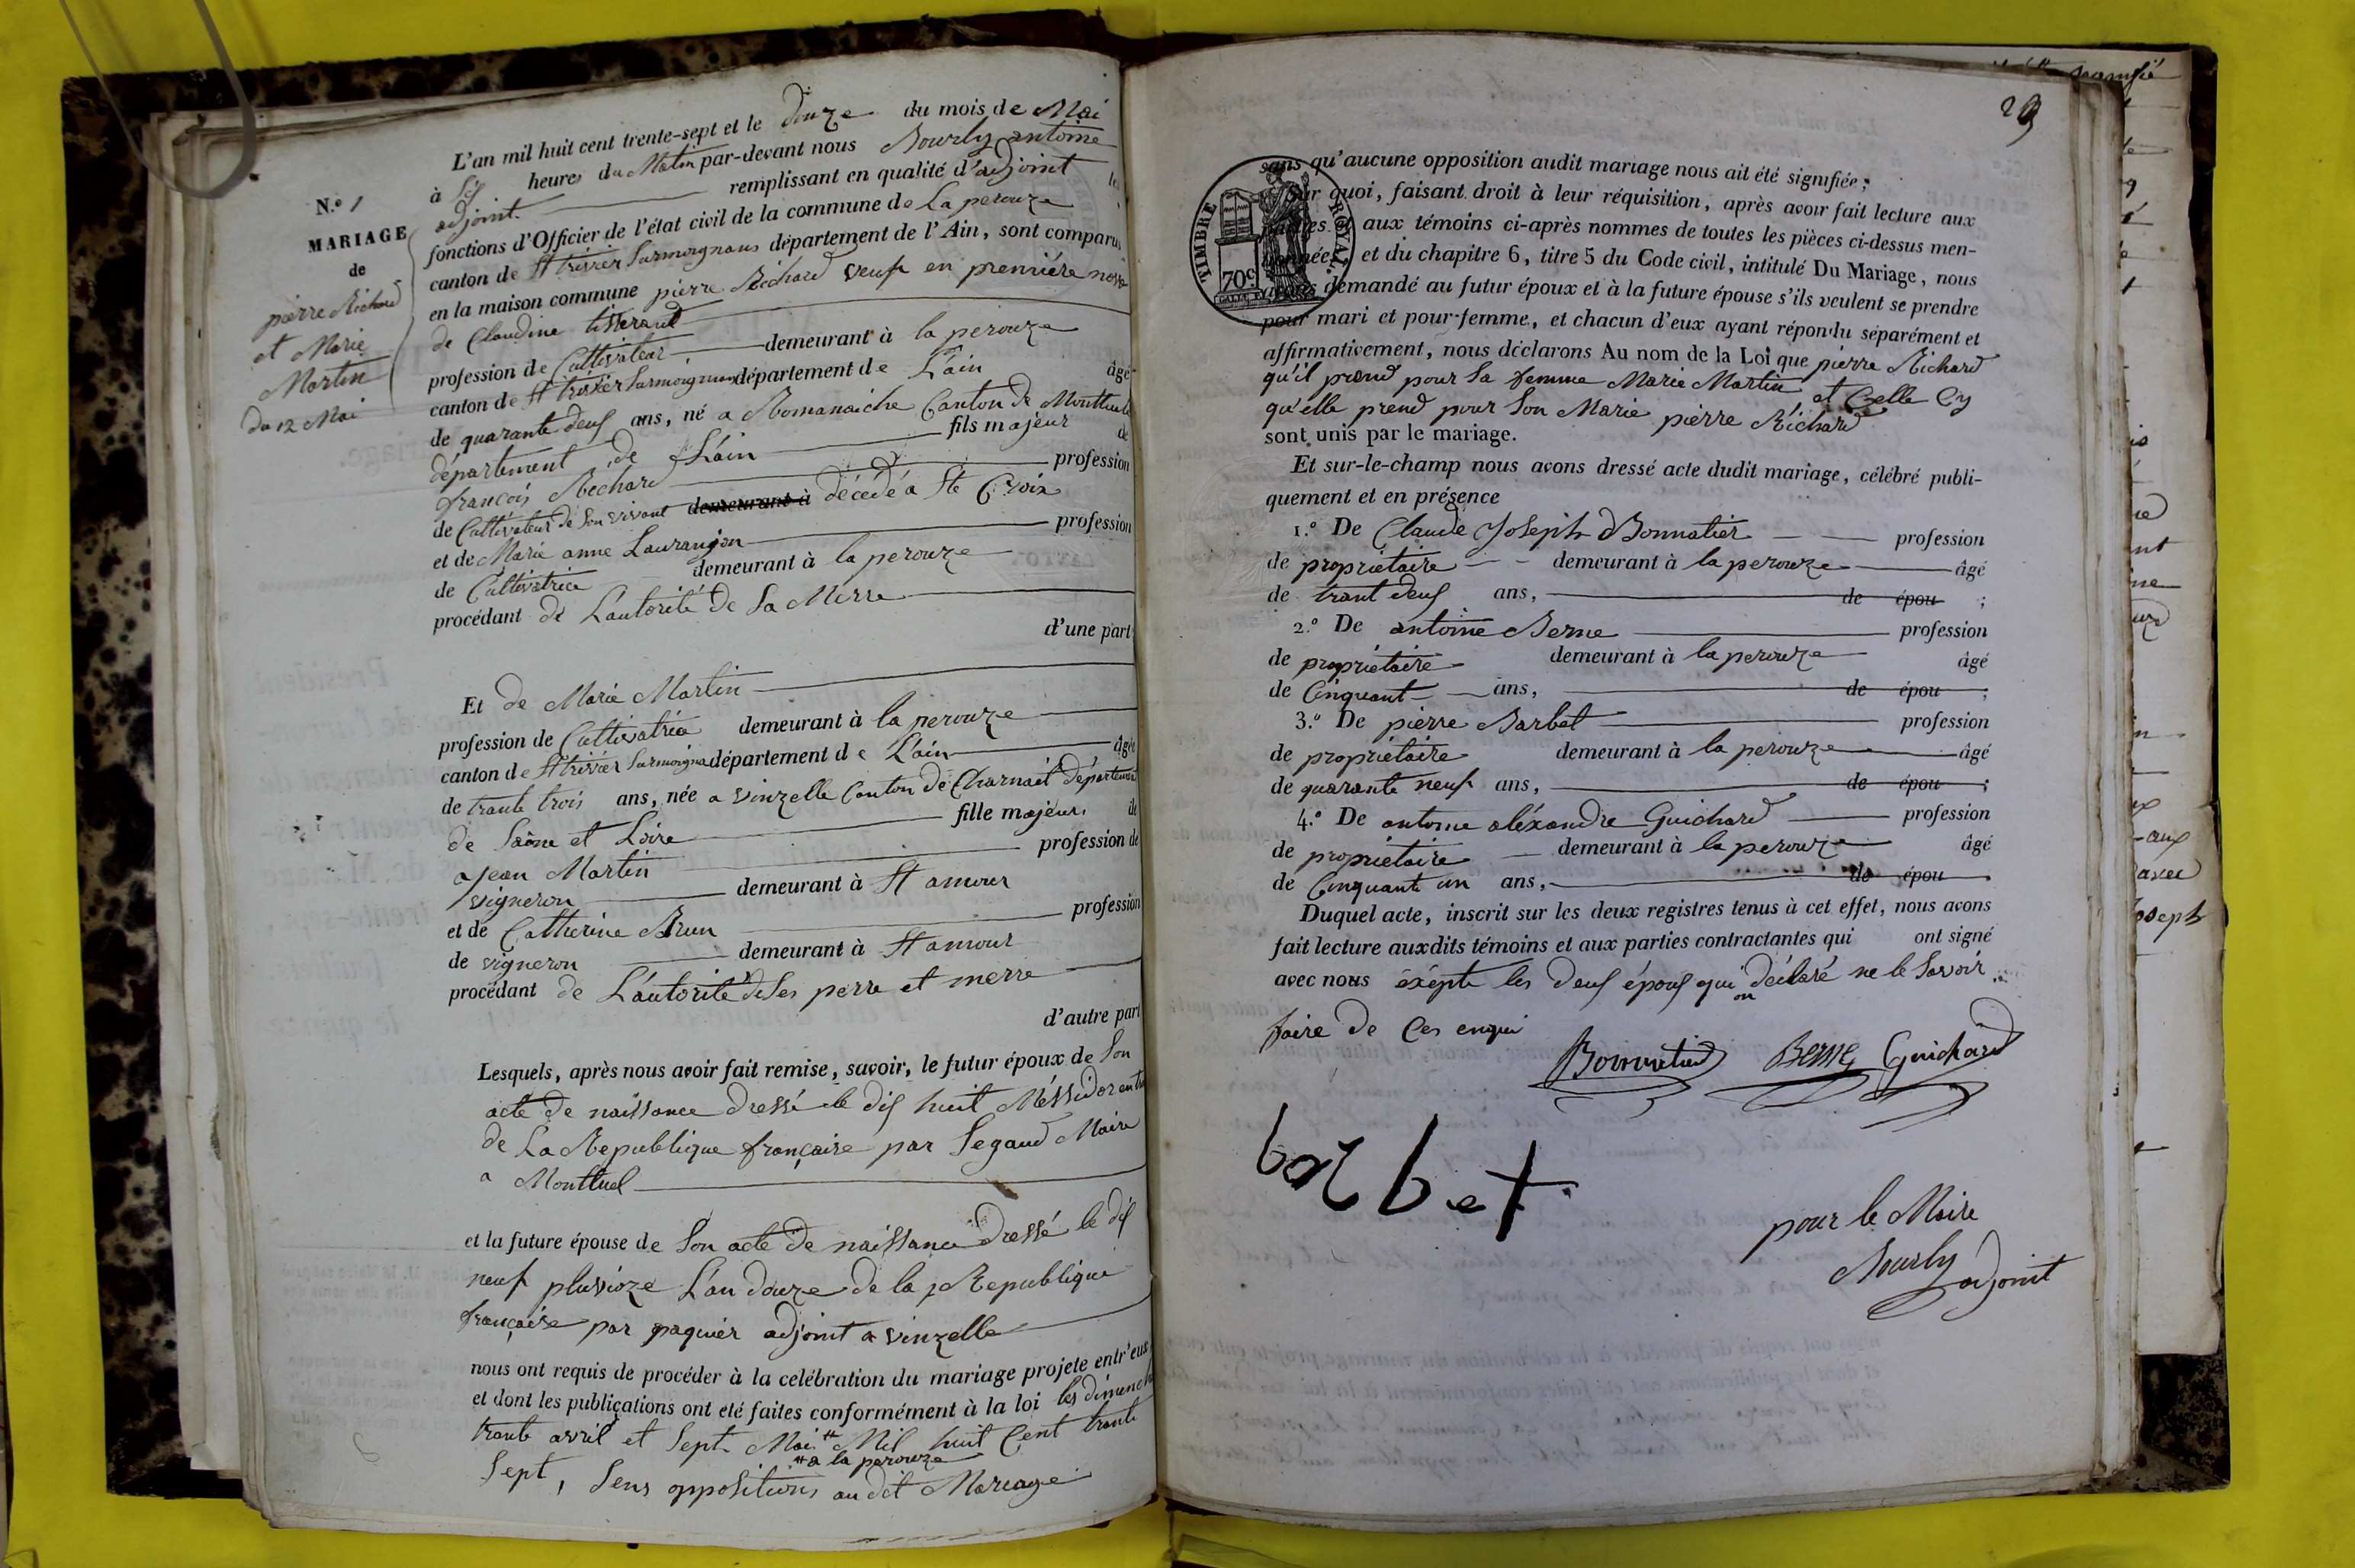 N.º 1
MARIAGE
de
pierre Richard
et Marie
Martin
du 12 Mai
L'an mil huit cent trente-sept et le douze du mois de Mai
à Six heures du Matin par-devant nous Bourly antoine
adjoint remplissant en qualité d'adjoint les
fonctions d'Officier de l'état civil de la commune de La perouze
canton de St trivier Surmoignans département de l'Ain, sont comparus
en la maison commune pierre Richard veuf en première nosse
de Claudine tisserand
profession de Cultivateur demeurant à la perouze
canton de St trivier Surmoignans département de L'ain âgé
de quarante deux ans, né a Romanaiche Canton de Montluel
département de L'ain fils majeur de
françois Richard profession
de Cultivateur de Son vivant demeurant à décédé a Ste Croix
et de Marie anne Laurançon profession
de Cultivatrice demeurant à la perouze
procédant de L'autorité de Sa Merre
d'une part
Et de Marie Martin
profession de Cultivatrice demeurant à la perouze
canton de St trivier Surmoigna département de L'ain âgée
de trante trois ans, née a vinzelle Canton de Charnait département
de Saône et Loire fille majeure de
Jean Martin profession de
vigneron demeurant à St amour
et de Catherine Brun profession
de vigneron demeurant à St amour
procédant de L'autorité de Ses perre et merre
d'autre part
Lesquels, après nous avoir fait remise, savoir, le futur époux de Son
acte de naissance dressé le dix huit Méssidor an
de La Republique française par Segaud Maire
a Montluel
et la future épouse de Son acte de naissance dressé le dix
neuf pluvioze L'an douze de la Republique
française par paquier adjoint a vinzelle
nous ont requis de procéder à la celébration du mariage projete entr'eux,
et dont les publications ont eté faites conformément à la loi les dimench
trante avril et Sept Mai # Mil huit Cent trante
# a la perouze
Sept, Sens oppositions au dit Mariage
29
TIMBRE ROYAL
70c
sans qu'aucune opposition audit mariage nous ait été signifiée;
Sur quoi, faisant droit à leur réquisition, après avoir fait lecture aux
parties aux témoins ci-après nommes de toutes les pièces ci-dessus men-
tionnées, et du chapitre 6, titre 5 du Code civil, intitulé Du Mariage, nous
avons demandé au futur époux et à la future épouse s'ils veulent se prendre
pour mari et pour femme, et chacun d'eux ayant répondu séparément et
affirmativement, nous déclarons Au nom de la Loi que pierre Richard
qu'il prend pour Sa femme Marie Martin et Celle Cy
qu'elle prend pour Son Marie pierre Richard
sont unis par le mariage.
Et sur-le-champ nous avons dressé acte dudit mariage, célébré publi-
quement et en présence
1.º De Claude Joseph Bonnatier profession
de propriétaire demeurant à la perouze âgé
de trant deux ans, de épou ;
2.º De antoine Berne profession
de propriétaire demeurant à la perouze âgé
de Cinquant ans, de épou ;
3.º De pierre Barbet profession
de propriétaire demeurant à la perouze âgé
de quarante neuf ans, de épou ;
4.º De antoine aléxandre Guichard profession
de propriétaire demeurant à la perouze âgé
de Cinquante un ans, de épou .
Duquel acte, inscrit sur les deux registres tenus à cet effet, nous avons
fait lecture auxdits témoins et aux parties contractantes qui ont signé
avec nous éxépté les deux époux qui on déclaré ne le Savoir
faire de Ces enqui
Bonnatier Berne Guichard
barbet
pour le Maire
Bourly
adjoint